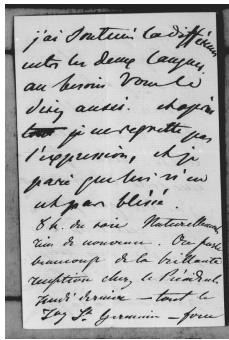 j'ai soutenu la différence
entre les deux langues.
au besoin vous le
direz aussi. et après
je ne regrette pas
l'expression, et je
parie que lui n'en
est pas blessé.
8 h. du soir Naturellement
rien de nouveau. On parle
beaucoup de la brillante
réception chez le Présidt.
jeudi dernier — tout le
Fbg St. Germain —